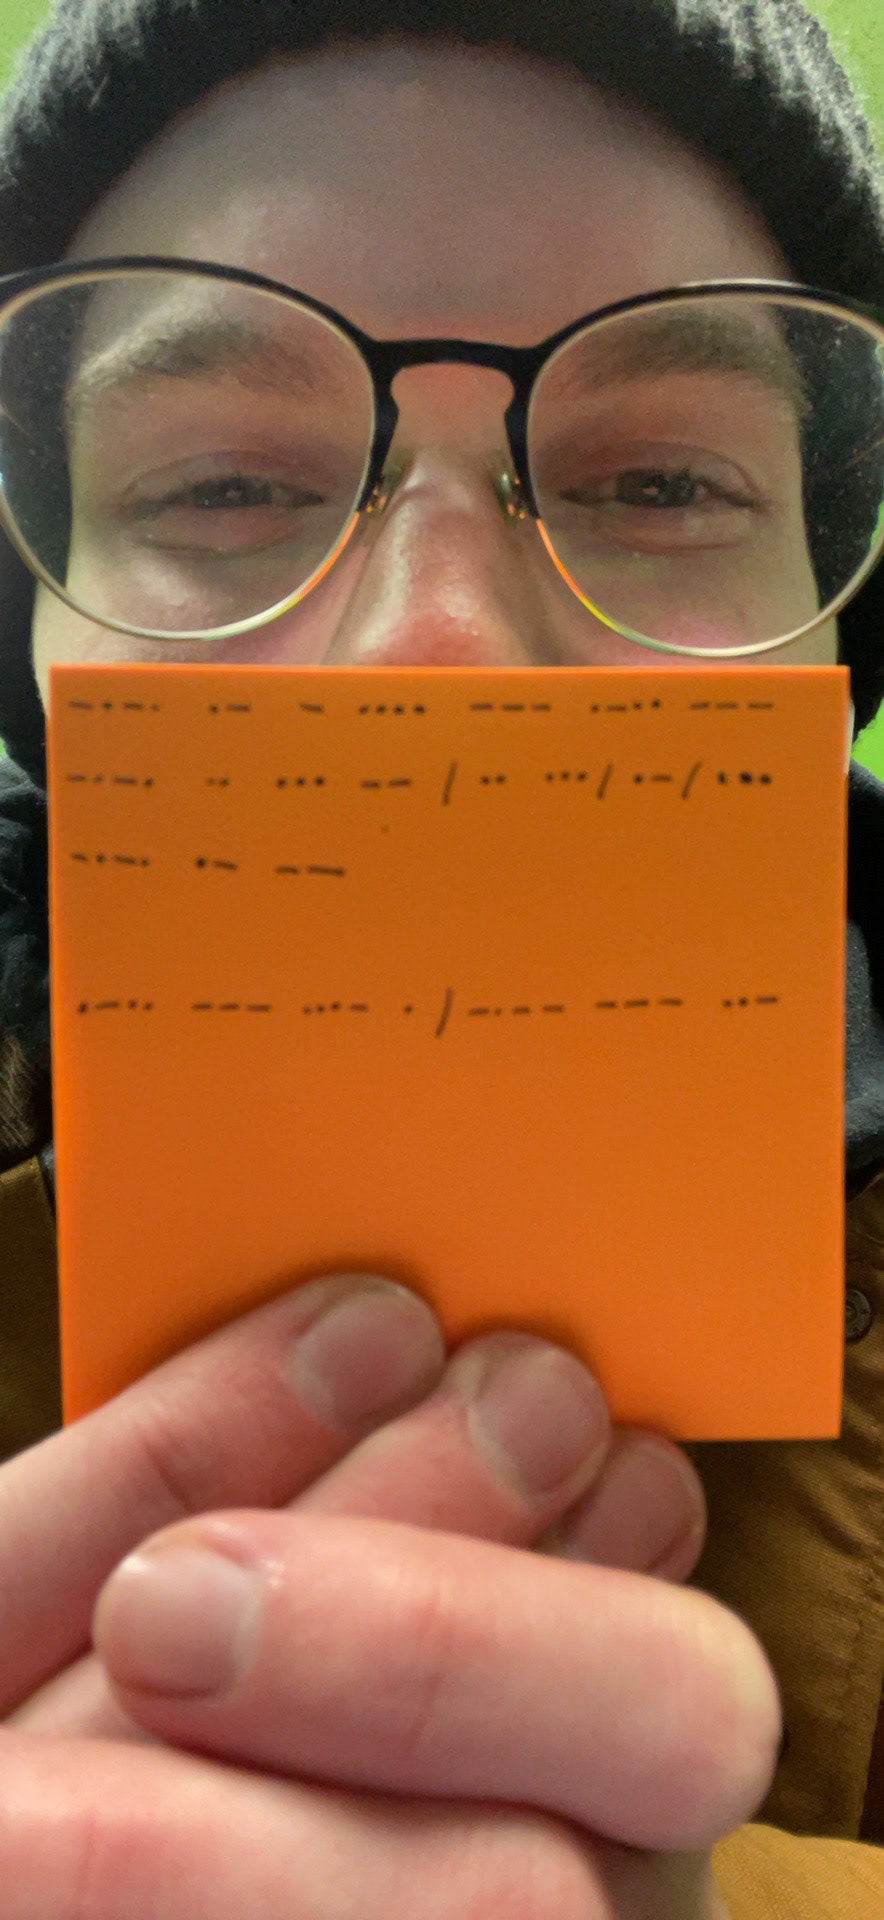 -.-. .- - .... --- .-.. ---
-.-. .. ... -- / .. ... / .- / ...
-.-. .- --
.-.. --- ...- . / -.-- --- ..-